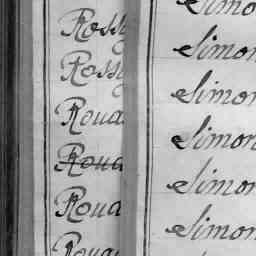 Rossy
Rossy
Roua
Roua
Roua
Roua
Simon
Simon
Simon
Simon
Simon
Simon